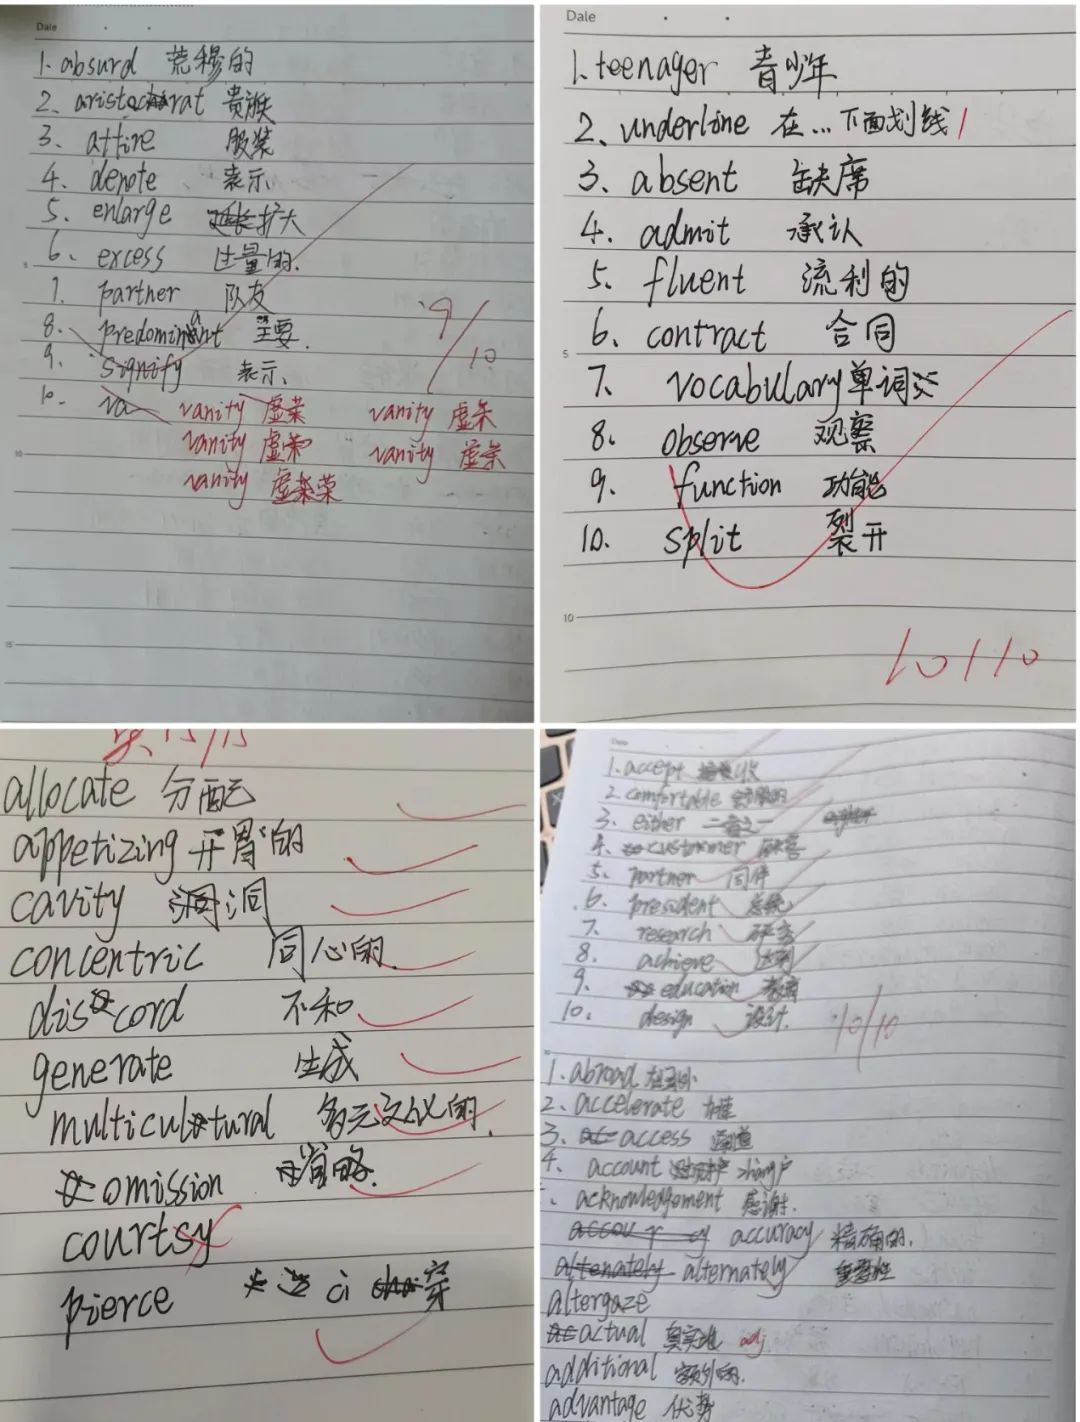 Dale
1. absurd 荒穆的
2. aristocrat 贵族
3. attire 服装
4. denote 表示
5. enlarge 扩大
6. excess 过量的.
7. partner 队友
8. predominant 主要.
9. signify 表示、
10. va vanity 虚荣 vanity 虚荣
vanity 虚荣 vanity 虚荣
vanity 虚荣
9/10
10
15
Dale
1. teenager 青少年
2. underline 在...下面划线
3. absent 缺席
4. admit 承认
5. fluent 流利的
6. contract 合同
5
7. vocabulary 单词
8. observe 观察
9. function 功能
10. split 裂开
10
10/10
15/15
allocate 分配
appetizing 开胃的
cavity 洞
concentric 同心的.
discord 不和
generate 生成
multicultural 多元文化的.
omission 省略.
courtsy
pierce ci 穿
1. accept 接收
2. comfortable 舒服的
3. either 二者之一
4. custommer 顾客
5. partner 同伴
6. president 总统
7. research 研究
8. achieve 达到
9. education 教育
10. design 设计.
10/10
1. abroad 在国外
2. accelerate
3. access 通道
4. account zhang户
acknowledgement 感谢.
accuracy 精确的.
alternately 重要性
altergaze
actual 真实地 adj.
additional 额外的.
advantage 优势